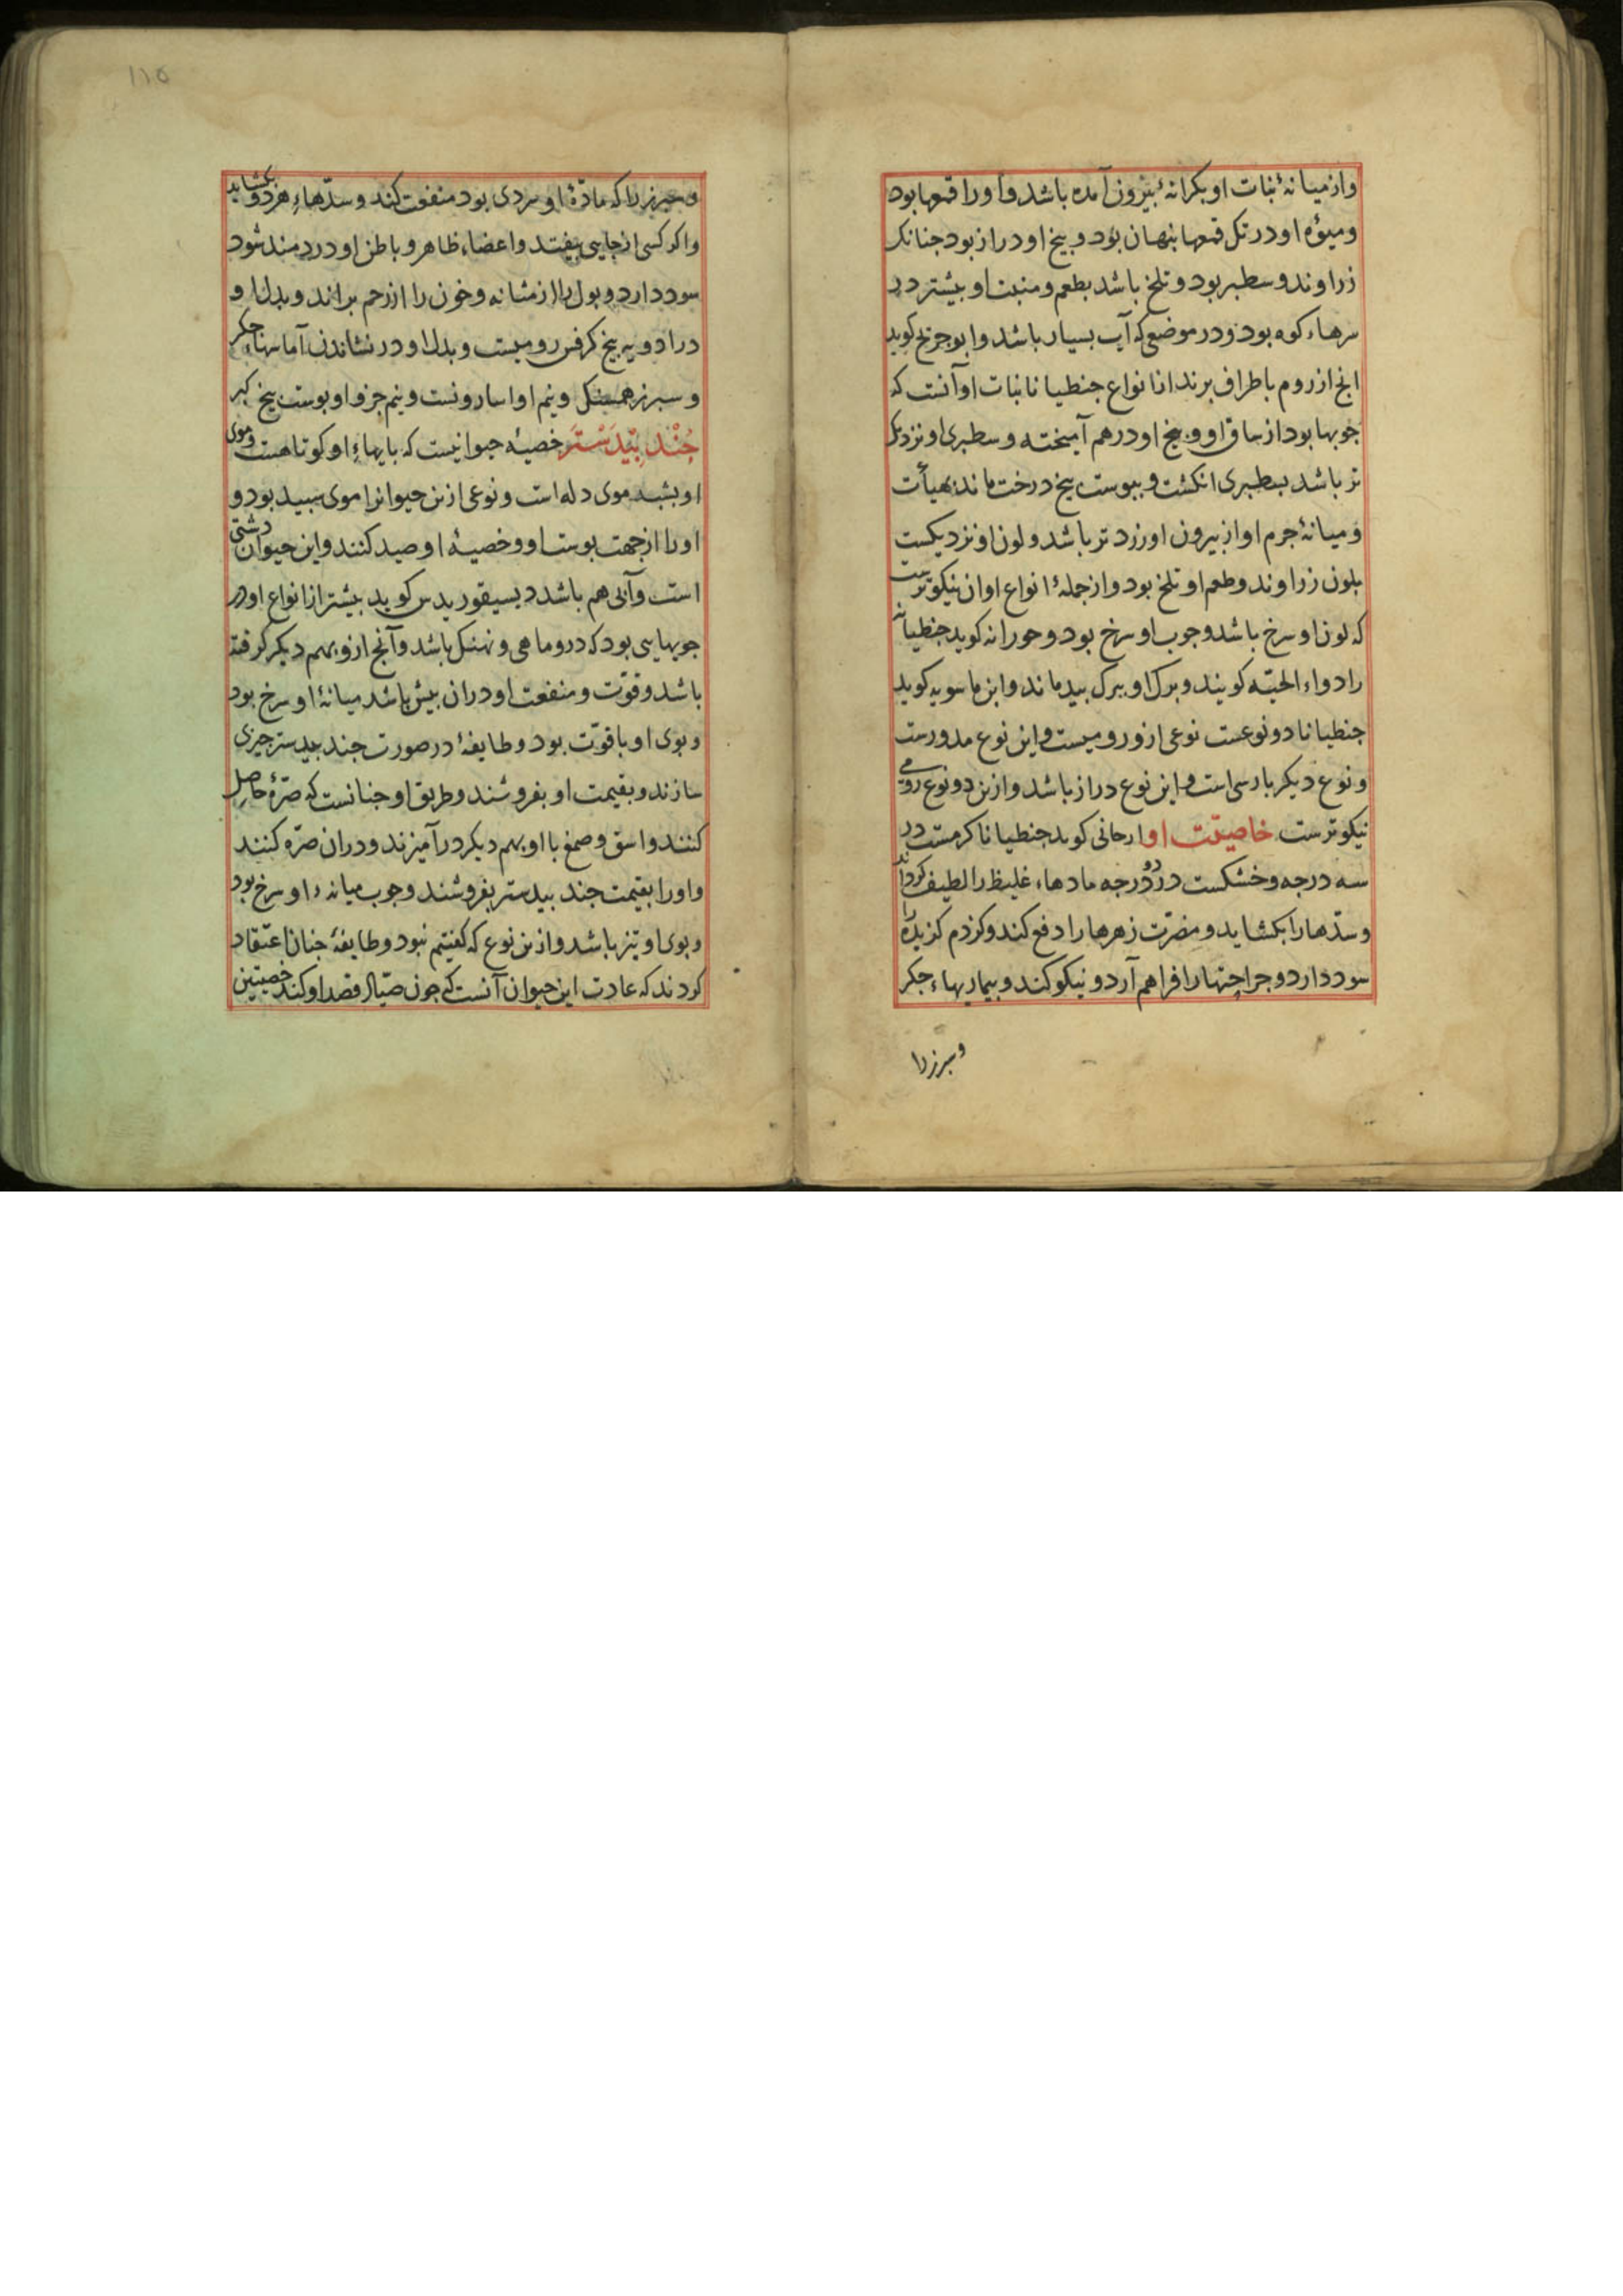 وازمیانهٔ نبات او بکرانهٔ بیرون آمده باشد و اورا قمعها بود
ومیوهٔ او در تکل قمعها بنهان بود و بیخ او دراز بود جنانک
زراوند و سطبر بود و تلخ باشد بطعم و منبت او بیشتر در
سرهاء کوه بود و در موضعی که آب بسیار باشد و ابو جریج کوید
انج از روم باطراف برند از انواع جنطیانا نبات او آنست که
جوبها بود از ساق او و بیخ او در هم آمیخته و سطبری او نزدیک
تر باشد بسطبری انکشت و ببوست بیخ درخت ماند بهیأت
و میانهٔ جرم او از بیرون او زرد تر باشد و لون او نزدیکست
بلون زراوند و طعم او تلخ بود و از جملهٔ انواع او ان نیکوترست
که لون او سرخ باشد و جوب او سرخ بود و حورانه کوید جنطیانه
را دواء الحیّه کویند و برک او ببرک بید ماند و ابن ماسویه کوید
جنطیانا دو نوعست نوعی ازو رومیست و این نوع مدورست
و نوع دیکر بارسی است و این نوع دراز باشد و ازین دو نوع رومی
نیکوترست خاصیّت او ارجانی کوید جنطیانا کرمست در
سه درجه و خشکست در دو درجه مادهاء غلیظ را لطیف کرداند
و سدّها را بکشاید و مضرّت زهرها را دفع کند و کزدم کزیده را
سود دارد و جراحتها را فراهم آرد و نیکو کند و بیماریهاء جکر
و سبرز را
۱۱۵
و سبرز را که مادّهٔ او سردی بود منفعت کند و سدّهاءِ هر دو بکشاید
واکر کسی از جایی بیفتد و اعضاء ظاهر و باطن او دردمند شود
سود دارد و بول را از مثانه و خون را از رحم براند و بدل او
در ادویه بیخ کرفس رومیست و بدل او در نشاندن آماسهاءِ جکر
و سبرز همسنک و نیم او اسارونست و نیم جزو او بوست بیخ کبر
جُنْدِ بَیْدَسْتَر خصیهٔ حیوانیست که بایهاءِ او کوتاهست و موی
او بشبه موی دله است و نوعی ازین حیوانرا موی سبید بود و
اورا از جهت بوست او و خصیهٔ او صید کنند و این حیوان دشتی
است و آبی هم باشد دیسیقوریدس کوید بیشتر از انواع او در
جویهایی بود که درو ماهی و نهنک باشد و آنج ازو بهم دیکر کرفته
باشد و قوّت و منفعت او دران بیش باشد میانهٔ او سرخ بود
و بوی او با قوّت بود و طایفهٔ در صورت جند بیدستر جیزی
سازند و بقیمت او بفروشند و طریق او جنانست که صرّهٔ حاصل
کنند و اشق و صمغ با او بهم دیکر درآمیزند و دران صرّه کنند
واورا بقیمت جند بیدستر بفروشند و جوب میانهء او سرخ بود
و بوی او تیز باشد و ازین نوع که کفتیم نبود و طایفهٔ جنان اعتقاد
کردند که عادت این حیوان آنست که جون صیّاد قصد او کند خصیتین